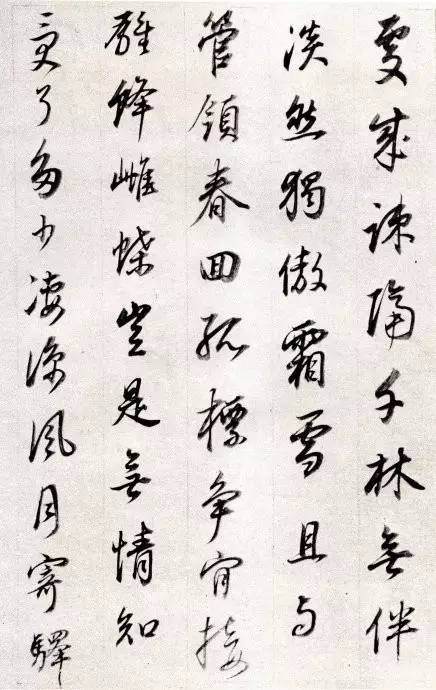 處成疎隔千林無伴
淡然獨傲霜雪且与
管領春回孤標争肯接
雄蜂雌蝶豈是無情知
受了多少凄涼風月寄驛